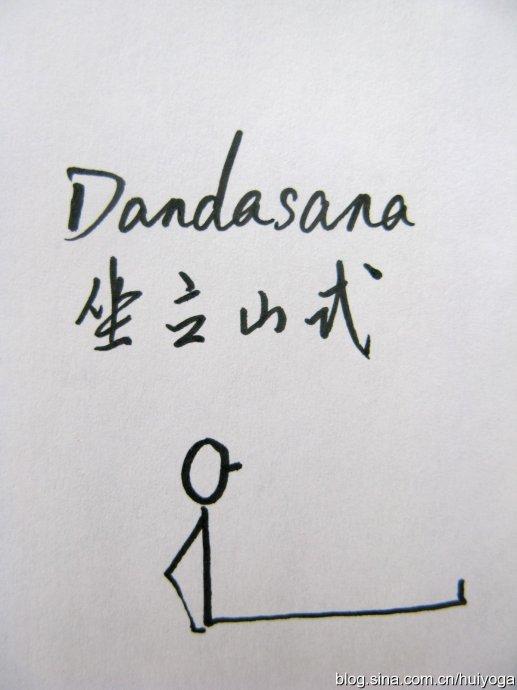 Dandasana
坐立山式
blog.sina.com.cn/huiyoga